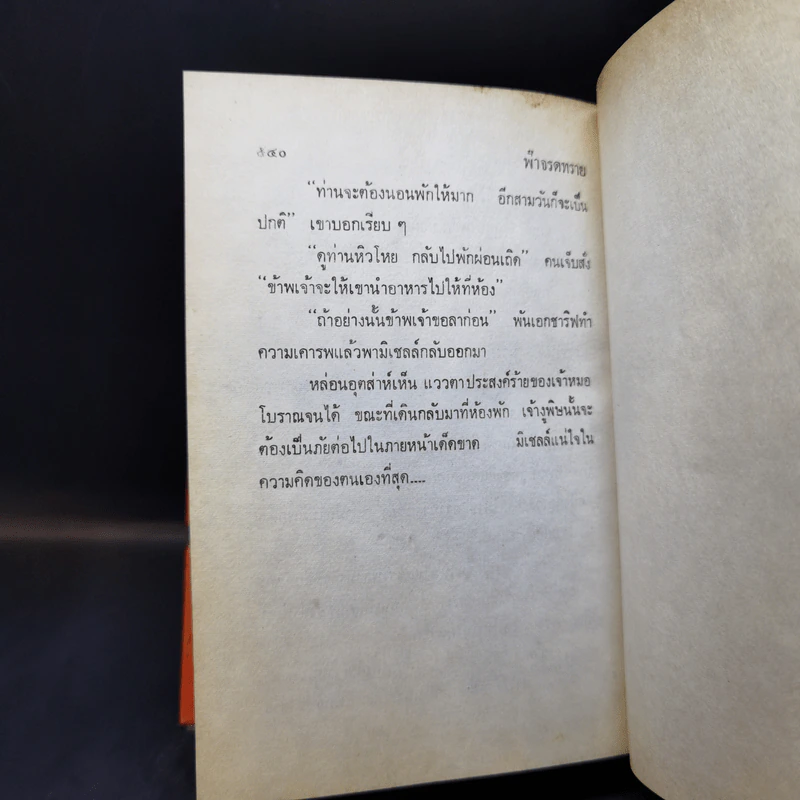 ๕๔๐
ฟ้าจรดทราย
“ท่านจะต้องนอนพักให้มาก อีกสามวันก็จะเป็น
ปกติ” เขาบอกเรียบ ๆ
“ดูท่านหิวโหย กลับไปพักผ่อนเถิด” คนเจ็บสั่ง
“ข้าพเจ้าจะให้เขานำอาหารไปให้ที่ห้อง”
“ถ้าอย่างนั้นข้าพเจ้าขอลาก่อน” พันเอกชารีฟทำ
ความเคารพแล้วพามิเชลล์กลับออกมา
หล่อนอุตส่าห์เห็น แววตาประสงค์ร้ายของเจ้าหมอ
โบราณจนได้ ขณะที่เดินกลับมาที่ห้องพัก เจ้างูพิษนั้นจะ
ต้องเป็นภัยต่อไปในภายหน้าเด็ดขาด มิเชลล์แน่ใจใน
ความคิดของตนเองที่สุด....